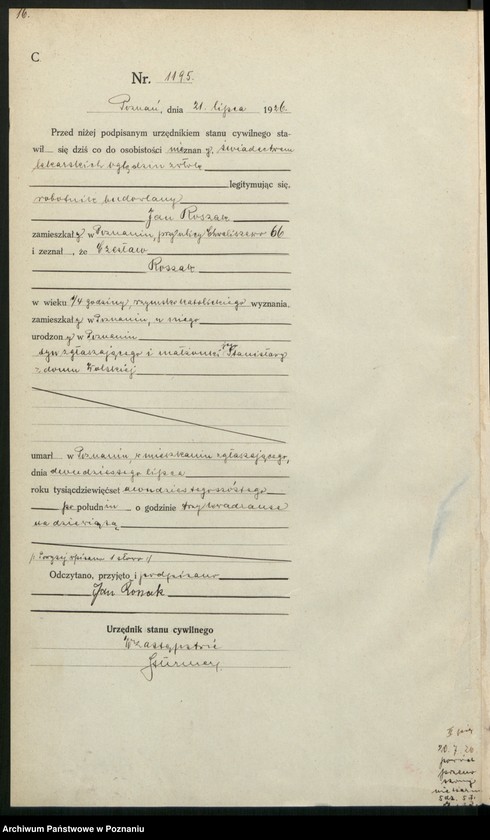 16.
C
Nr. 1195.
Poznań, dnia 21. lipca 1926.
Przed niżej podpisanym urzędnikiem stanu cywilnego sta-
wił się dziś co do osobistości nieznany, świadectwem
lekarskich oględzin zwłok
legitymując się,
robotnik budowlany
Jan Roszak
zamieszkały w Poznaniu, przy ulicy Chwaliszewo 66
i zeznał, że Czesław
Roszak
w wieku 1/4 godziny, rzymsko katolickiego wyznania,
zamieszkały w Poznaniu, u niego
urodzony w Poznaniu
syn zgłaszającego i małżonki jego Stanisławy
z domu Wolskiej
umarł w Poznaniu, w mieszkaniu zgłaszającego,
dnia dwudziestego lipca
roku tysiącdziewięćset dwudziestegoszóstego
po południu o godzinie trzy kwadranse
na dziewiątą
Powyżej wpisano 1 słowo
Odczytano, przyjęto i podpisano
Jan Roszak
Urzędnik stanu cywilnego
W zastępstwie
20. 7. 26
Archiwum Państwowe w Poznaniu